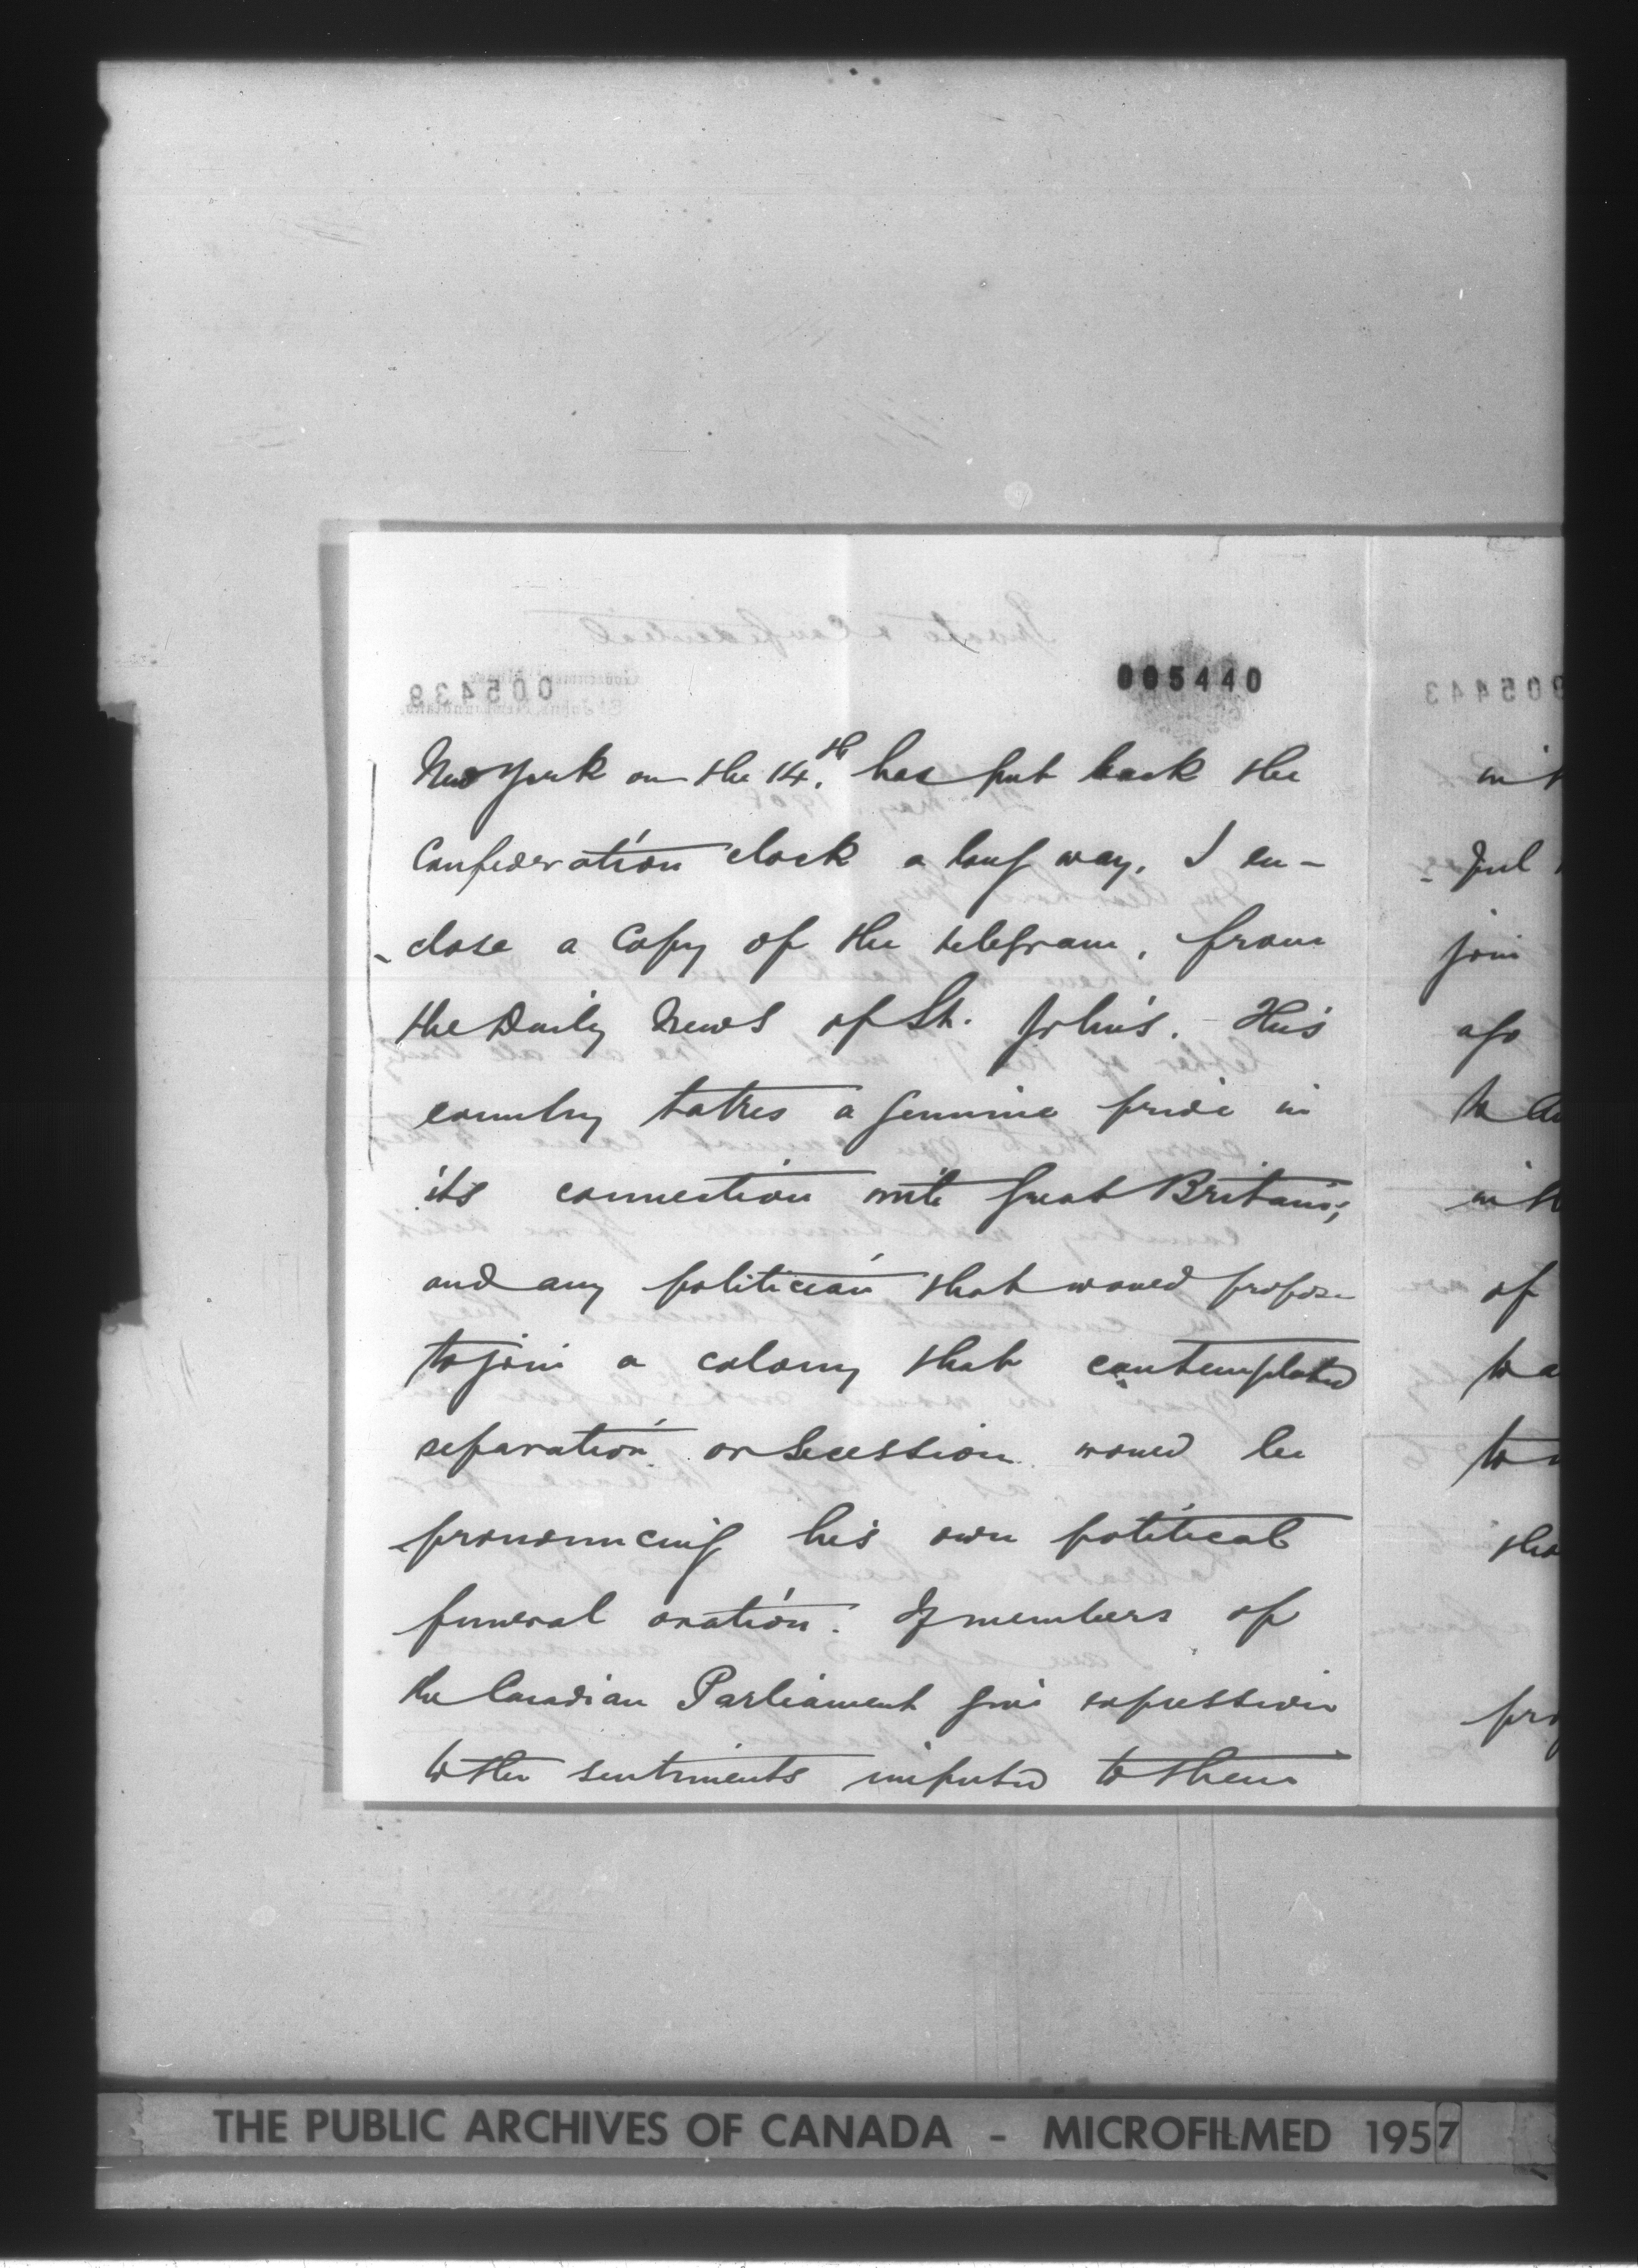 005440
New York on the 14th. has put back the
Confederation clock a long way. I en-
-close a Copy of the telegram, from
the Daily News of St. John's. This
country takes a genuine pride in
its connection with Great Britain;
and any politician that would propose
to join a colony that contemplated
separation or secession would be
pronouncing his own political
funeral oration. If members of
the Canadian Parliament give expression
to the sentiments imputed to them
in
-ful
join
ago
to
in
of
to
pro
THE PUBLIC ARCHIVES OF CANADA - MICROFILMED 1957